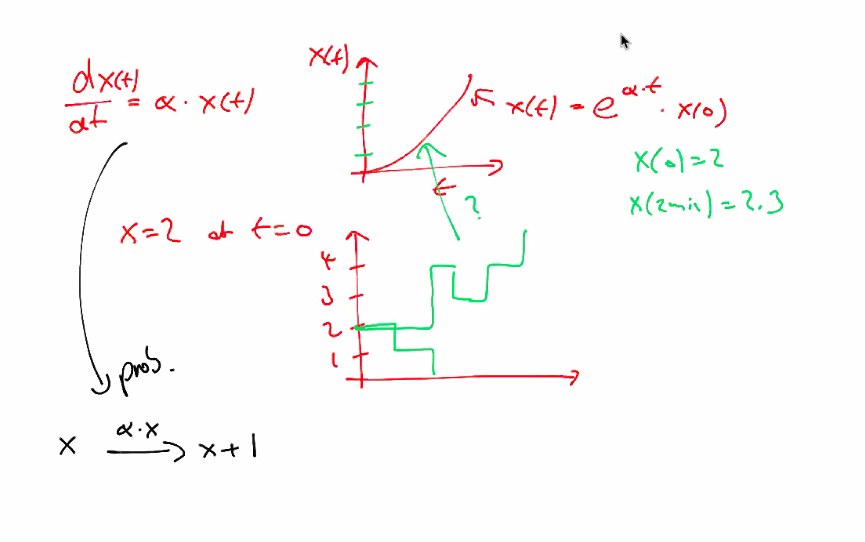 dx(t)/dt = α · x(t)
x(t)
x(t) = e^{α·t} · x(0)
x(0)=2
x(2min)=2.3
t
?
x=2 at t=0
4
3
2
1
prob.
α·x
x → x+1